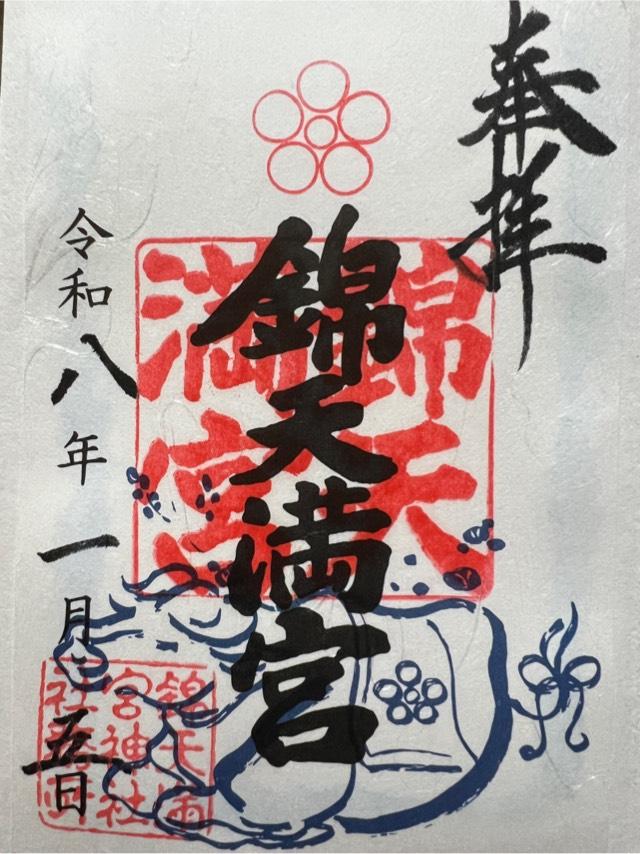 奉拝
錦天満宮
令和八年一月二五日
錦天
満宮
錦天満
宮神社